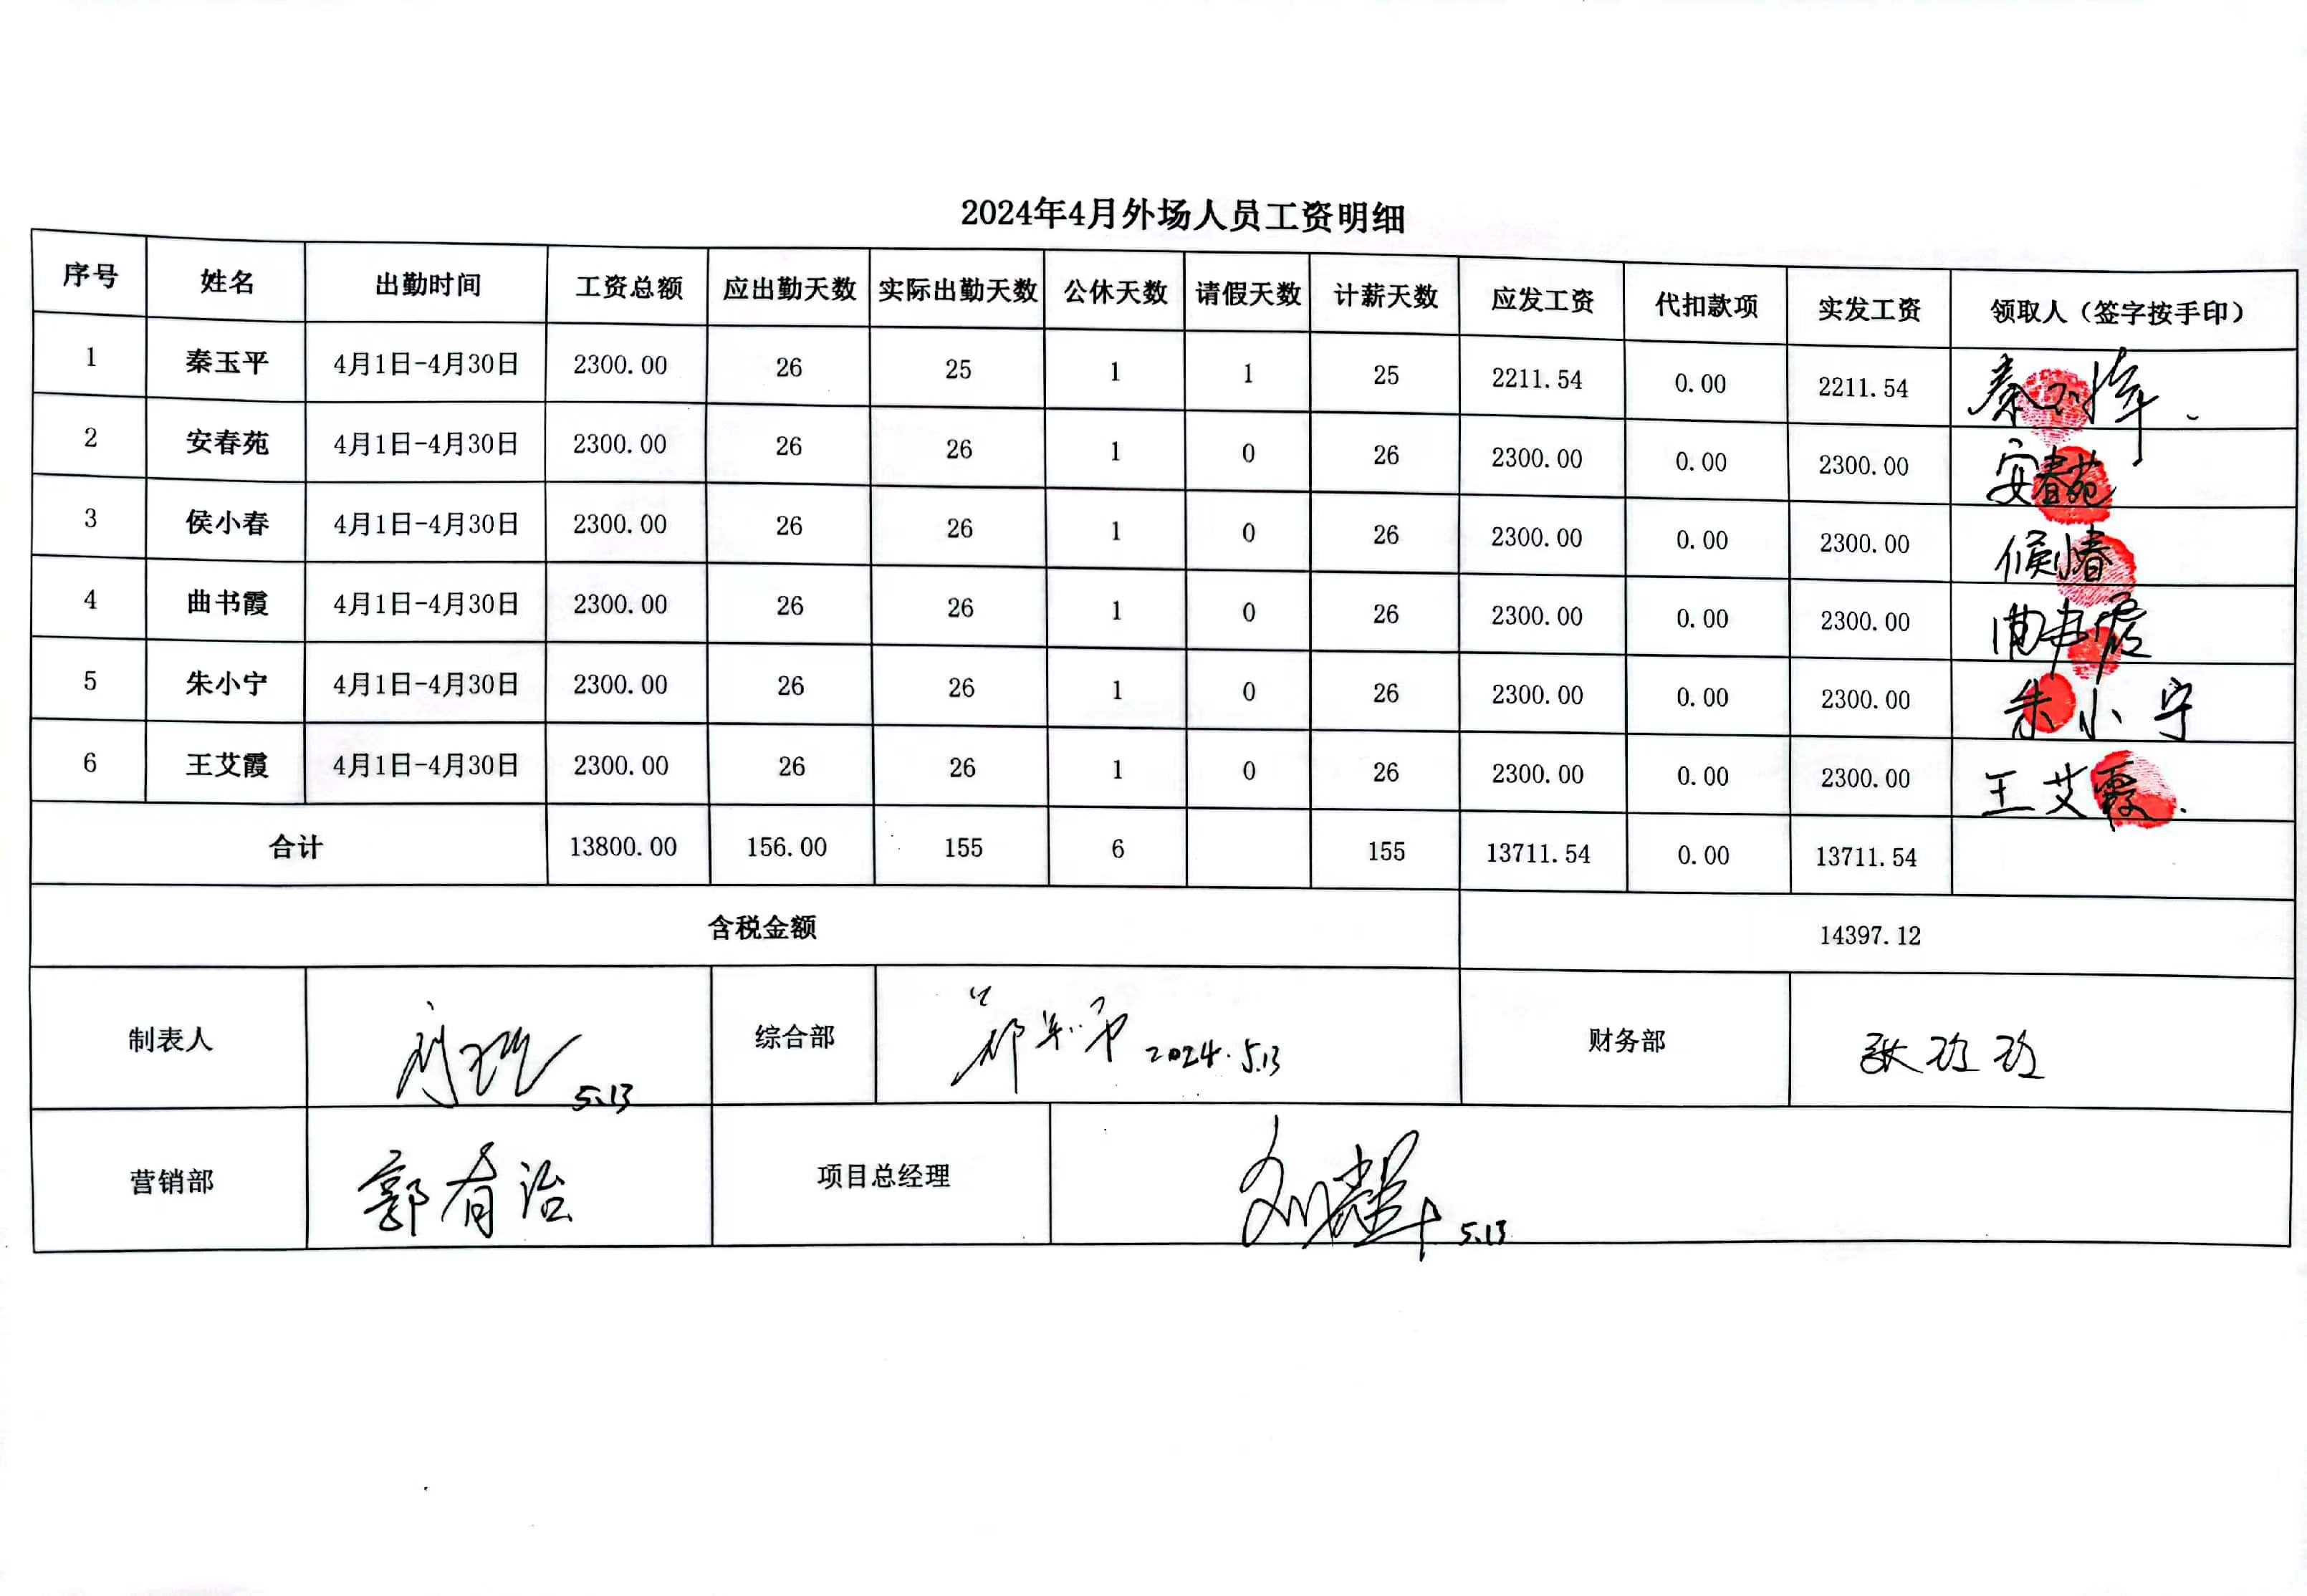 2024年4月外场人员工资明细
序号 姓名 出勤时间 工资总额 应出勤天数 实际出勤天数 公休天数 请假天数 计薪天数 应发工资 代扣款项 实发工资 领取人（签字按手印）
1 秦玉平 4月1日-4月30日 2300.00 26 25 1 1 25 2211.54 0.00 2211.54 秦
2 安春苑 4月1日-4月30日 2300.00 26 26 1 0 26 2300.00 0.00 2300.00 安春苑
3 侯小春 4月1日-4月30日 2300.00 26 26 1 0 26 2300.00 0.00 2300.00 候小春
4 曲书霞 4月1日-4月30日 2300.00 26 26 1 0 26 2300.00 0.00 2300.00 曲书霞
5 朱小宁 4月1日-4月30日 2300.00 26 26 1 0 26 2300.00 0.00 2300.00 朱小宁
6 王艾霞 4月1日-4月30日 2300.00 26 26 1 0 26 2300.00 0.00 2300.00 王艾霞.
合计 13800.00 156.00 155 6 155 13711.54 0.00 13711.54
含税金额 14397.12
制表人 5.13 综合部 2024.5.13 财务部
营销部 郭有治 项目总经理 5.13